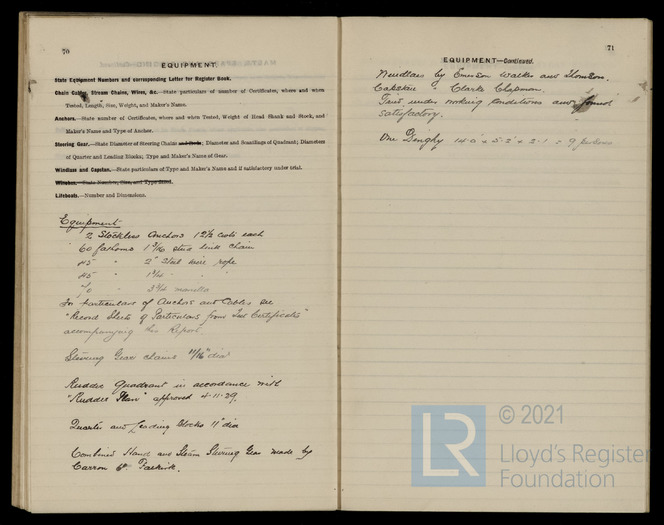 70
EQUIPMENT.
State Equipment Numbers and corresponding Letter for Register Book.
Chain Cables, Stream Chains, Wires, &c.—State particulars of number of Certificates, where and when
Tested, Length, Size, Weight, and Maker's Name.
Anchors.—State number of Certificates, where and when Tested, Weight of Head Shank and Stock, and
Maker's Name and Type of Anchor.
Steering Gear.—State Diameter of Steering Chains and Rods; Diameter and Scantlings of Quadrant; Diameters
of Quarter and Leading Blocks; Type and Maker's Name of Gear.
Windlass and Capstan.—State particulars of Type and Maker's Names and if satisfactory under trial.
Winches.—State Number, Size, and Type fitted.
Lifeboats.—Number and Dimensions.
Equipment
2 Stockless Anchors 12½ cwts each
60 fathoms 1 3/16 stud link chain
45 " 2" Steel wire rope
45 "
70 " manilla
For particulars of Anchors and Cables see
"Record Sheets of Particulars from Test Certificates"
accompanying this Report
Steering Gear chains 11/16" dia
Rudder Quadrant in accordance with
"Rudder Plan" approved 4-11-29.
Quarter and Leading Blocks 11" dia
Combined Hand and Steam Steering Gear made by
Carron Co. Falkirk.
71
EQUIPMENT—Continued.
Windlass by Emerson Walker and Thomson.
Capstan " Clarke Chapman.
Tried under working conditions and found
satisfactory.
One Dinghy 14.0 x 5.2 x 2.1 = 9 persons
LR
© 2021
Lloyd's Register
Foundation